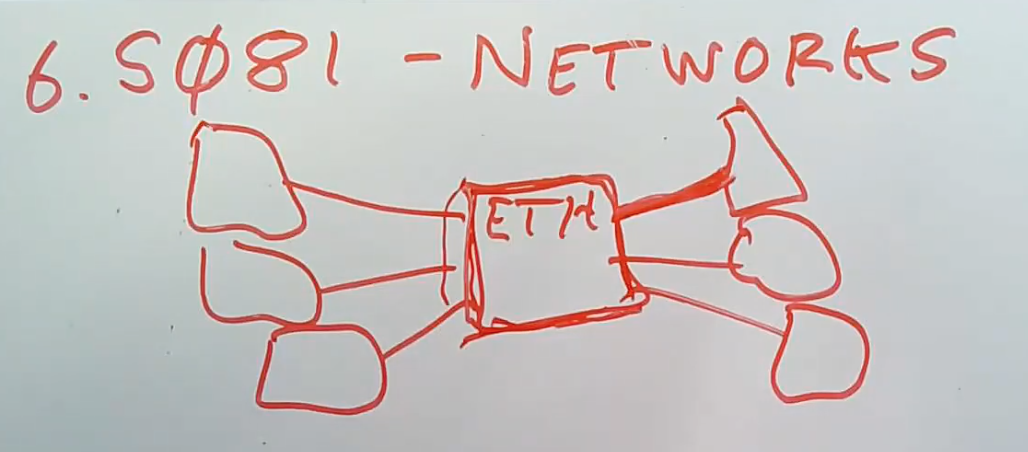 6. SØ81 - NETWORKS
ETH